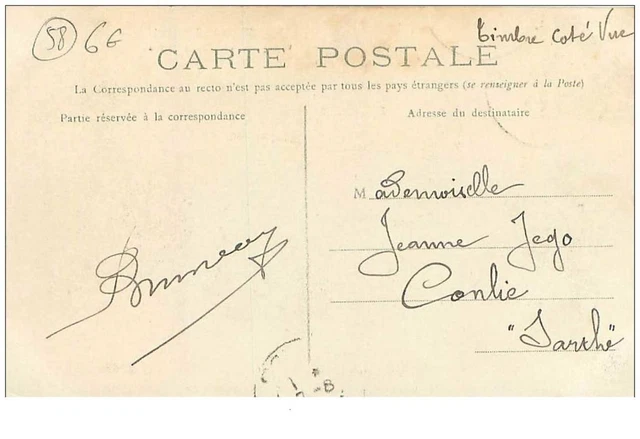 58 6€
Timbre coté Vue
CARTE POSTALE
La Correspondance au recto n'est pas acceptée par tous les pays étrangers (se renseigner à la Poste)
Partie réservée à la correspondance
Adresse du destinataire
Mademoiselle
Jeanne Jego
Conlie
"Sarthe"